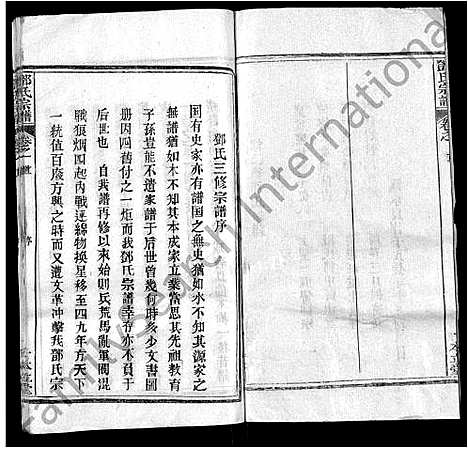 鄧氏三修宗譜序
国有史家亦有譜国之無史猶如水不知其源家之
無譜猶如木不知其本成家立業當思其先祖教育
子孫豈能不遺家譜于后世曾幾何時多少文書圖
册因四舊付之一炬而我鄧氏宗譜幸存亦不負于
后世也 自我譜再修以來始則兵荒馬亂軍閥混
戰狼烟四起内戰連綿物換星移至四九年方天下
一統值百廢方興之時而又遭文革冲擊我鄧氏宗
鄧氏宗譜
卷之一
序
鄧氏宗譜
FamilySearch International